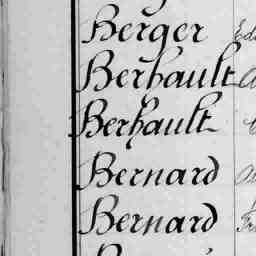 Berger
Berhault
Berhault
Bernard
Bernard